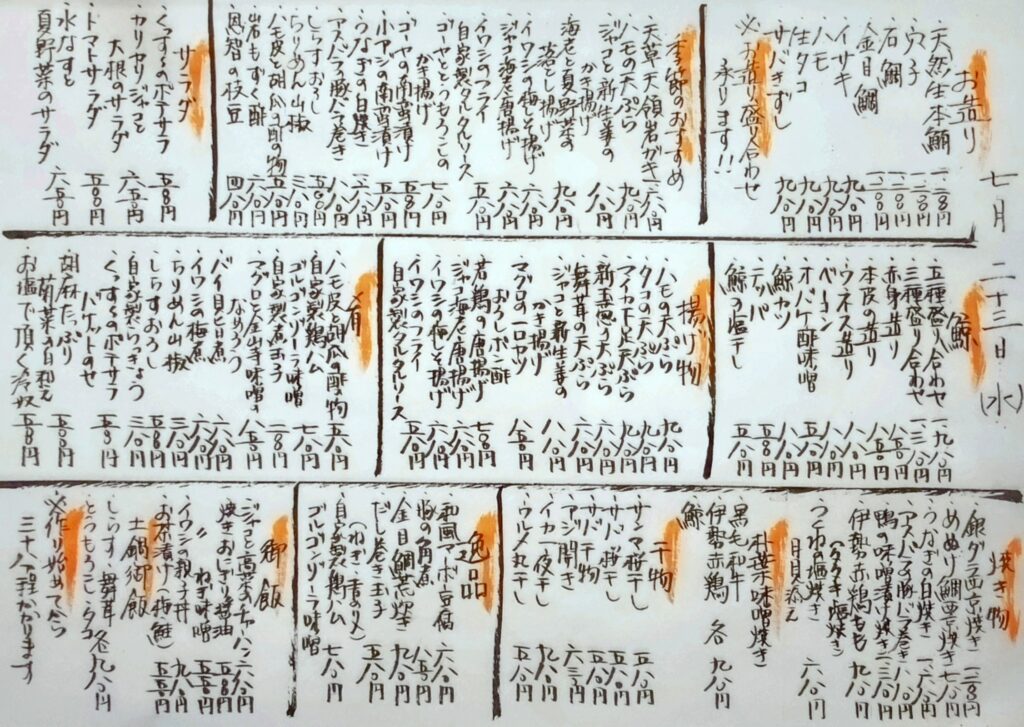 七月二十三日(水)
お造り
・天然生本鮪
・穴子
・石鯛
・金目鯛
・イサキ 九八〇円
・ハモ 九八〇円
・生タコ 九八〇円
・サバきずし 九八〇円
※お造り盛り合わせ
承ります!!
季節のおすすめ
・天草天領岩がき
・ハモの天ぷら 九八〇円
・ジャコと新生姜の
かき揚げ 八八〇円
・海老と夏野菜の
落とし揚げ 九八〇円
・イワシの梅しそ揚げ 六八〇円
・ジャコ海老唐揚げ 六八〇円
・イワシのフライ
自家製タルタルソース 五八〇円
・ゴーヤととうもろこしの
かき揚げ 七八〇円
・ゴーヤの南蛮漬け
・小アジの南蛮漬け
・うなぎの白焼き
・アスパラの豚バラ巻き 八八〇円
・しらすおろし
・ちりめん山椒 三八〇円
・ハモ皮と胡瓜の酢の物 五八〇円
・岩もずく酢
・恩智の枝豆 四八〇円
サラダ
・くっすーのポテサラ 五八〇円
・カリカリジャコと
大根のサラダ 六五〇円
・トマトサラダ 五八〇円
・水なすと
夏野菜のサラダ 六五〇円
鯨
・五種盛り合わせ 一、九八〇円
・三種盛り合わせ 一、三八〇円
・赤身造り 八五〇円
・本皮の造り 八五〇円
・ウネス造り 八八〇円
・ベーコン 八八〇円
・オバケ酢味噌 五八〇円
・鯨カツ 八八〇円
・テッパ 五八〇円
・鯨の塩干し 五八〇円
揚げ物
・ハモの天ぷら 九八〇円
・タコの天ぷら 九八〇円
・マイカ下足天ぷら
・新玉葱の天ぷら 六八〇円
・舞茸の天ぷら 六八〇円
・ジャコと新生姜の
かき揚げ 八八〇円
・マグロの一口カツ
おろしポン酢 八五〇円
・若鶏の唐揚げ 七〇〇円
・ジャコ海老唐揚げ 六八〇円
・イワシの梅しそ揚げ 六八〇円
・イワシのフライ
自家製タルタルソース 五八〇円
肴
・ハモ皮と胡瓜の酢の物 五八〇円
・自家製鶏ハム
ゴルゴンゾーラ味噌 七八〇円
・自家製煮玉子 二八〇円
・マグロと金山寺味噌の
なめろう 八五〇円
・バイ貝旨煮 六八〇円
・イワシの梅煮 六八〇円
・ちりめん山椒 三八〇円
・しらすおろし
・自家製らっきょう 三八〇円
・くっすーのポテサラ
バケットのせ
・胡麻たっぷり
菊菜の白和え 五八〇円
・お塩で頂く冷奴 五五〇円
焼き物
・銀ダラ西京焼き
・めめり鯛雲焼き
・うなぎの白焼き
・アスパラの豚バラ巻き 八八〇円
・鴨の味噌漬け焼き
・伊勢赤鶏もも
(タタキ・塩焼き) 九八〇円
・つくねの塩焼き
月見添え 六八〇円
朴葉味噌焼き
・黒毛和牛
・伊勢赤鶏
・鯨
各九八〇円
干物
・サンマ桜干し 五八〇円
・サバ桜干し 五八〇円
・サバ干物 五八〇円
・アジ開き 六八〇円
・イカ一夜干し 九八〇円
・ウルメ丸干し 五八〇円
逸品
・和風マーボ豆腐 六八〇円
・豚の角煮 八五〇円
・金目鯛荒焚き 九八〇円
・だし巻き玉子
(ねぎ・青のり入) 五八〇円
・自家製鶏ハム
ゴルゴンゾーラ味噌 七八〇円
御飯
・ジャコと高菜のチャーハン 六八〇円
・焼きおにぎり醤油
〃 ねぎ味噌
・イワシの親子丼 九八〇円
・お茶漬け(梅・鮭)
土鍋御飯
・しらす・舞茸
・とうもろこし・タコ
各九八〇円
※作り始めてから
三十八分程かかります